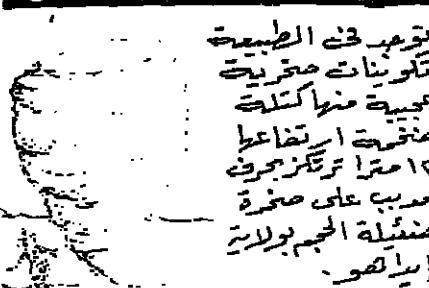 توجد في الطبيعة
تكوينات صخرية
عجيبة منها كتلة
ضخمة ارتفاعها
١٢ مترا ترتكز بحرف
مدبب على صخرة
ضئيلة الحجم بولاية
ايداهو.